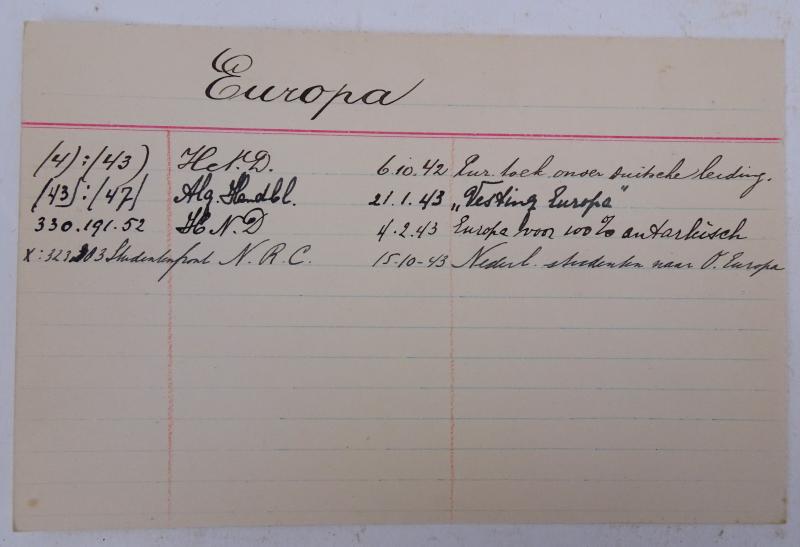 Europa
(4):(43) H.N.D. 6.10.42 Eur. toek. onder duitsche leiding.
(43):(47) Alg. Handbl. 21.1.43 „Vesting Europa"
330.191.52 H.N.D 4.2.43 Europa voor 100% autarkisch
X:323.203 Studentenfront N.R.C. 15-10-43 Nederl. studenten naar O. Europa